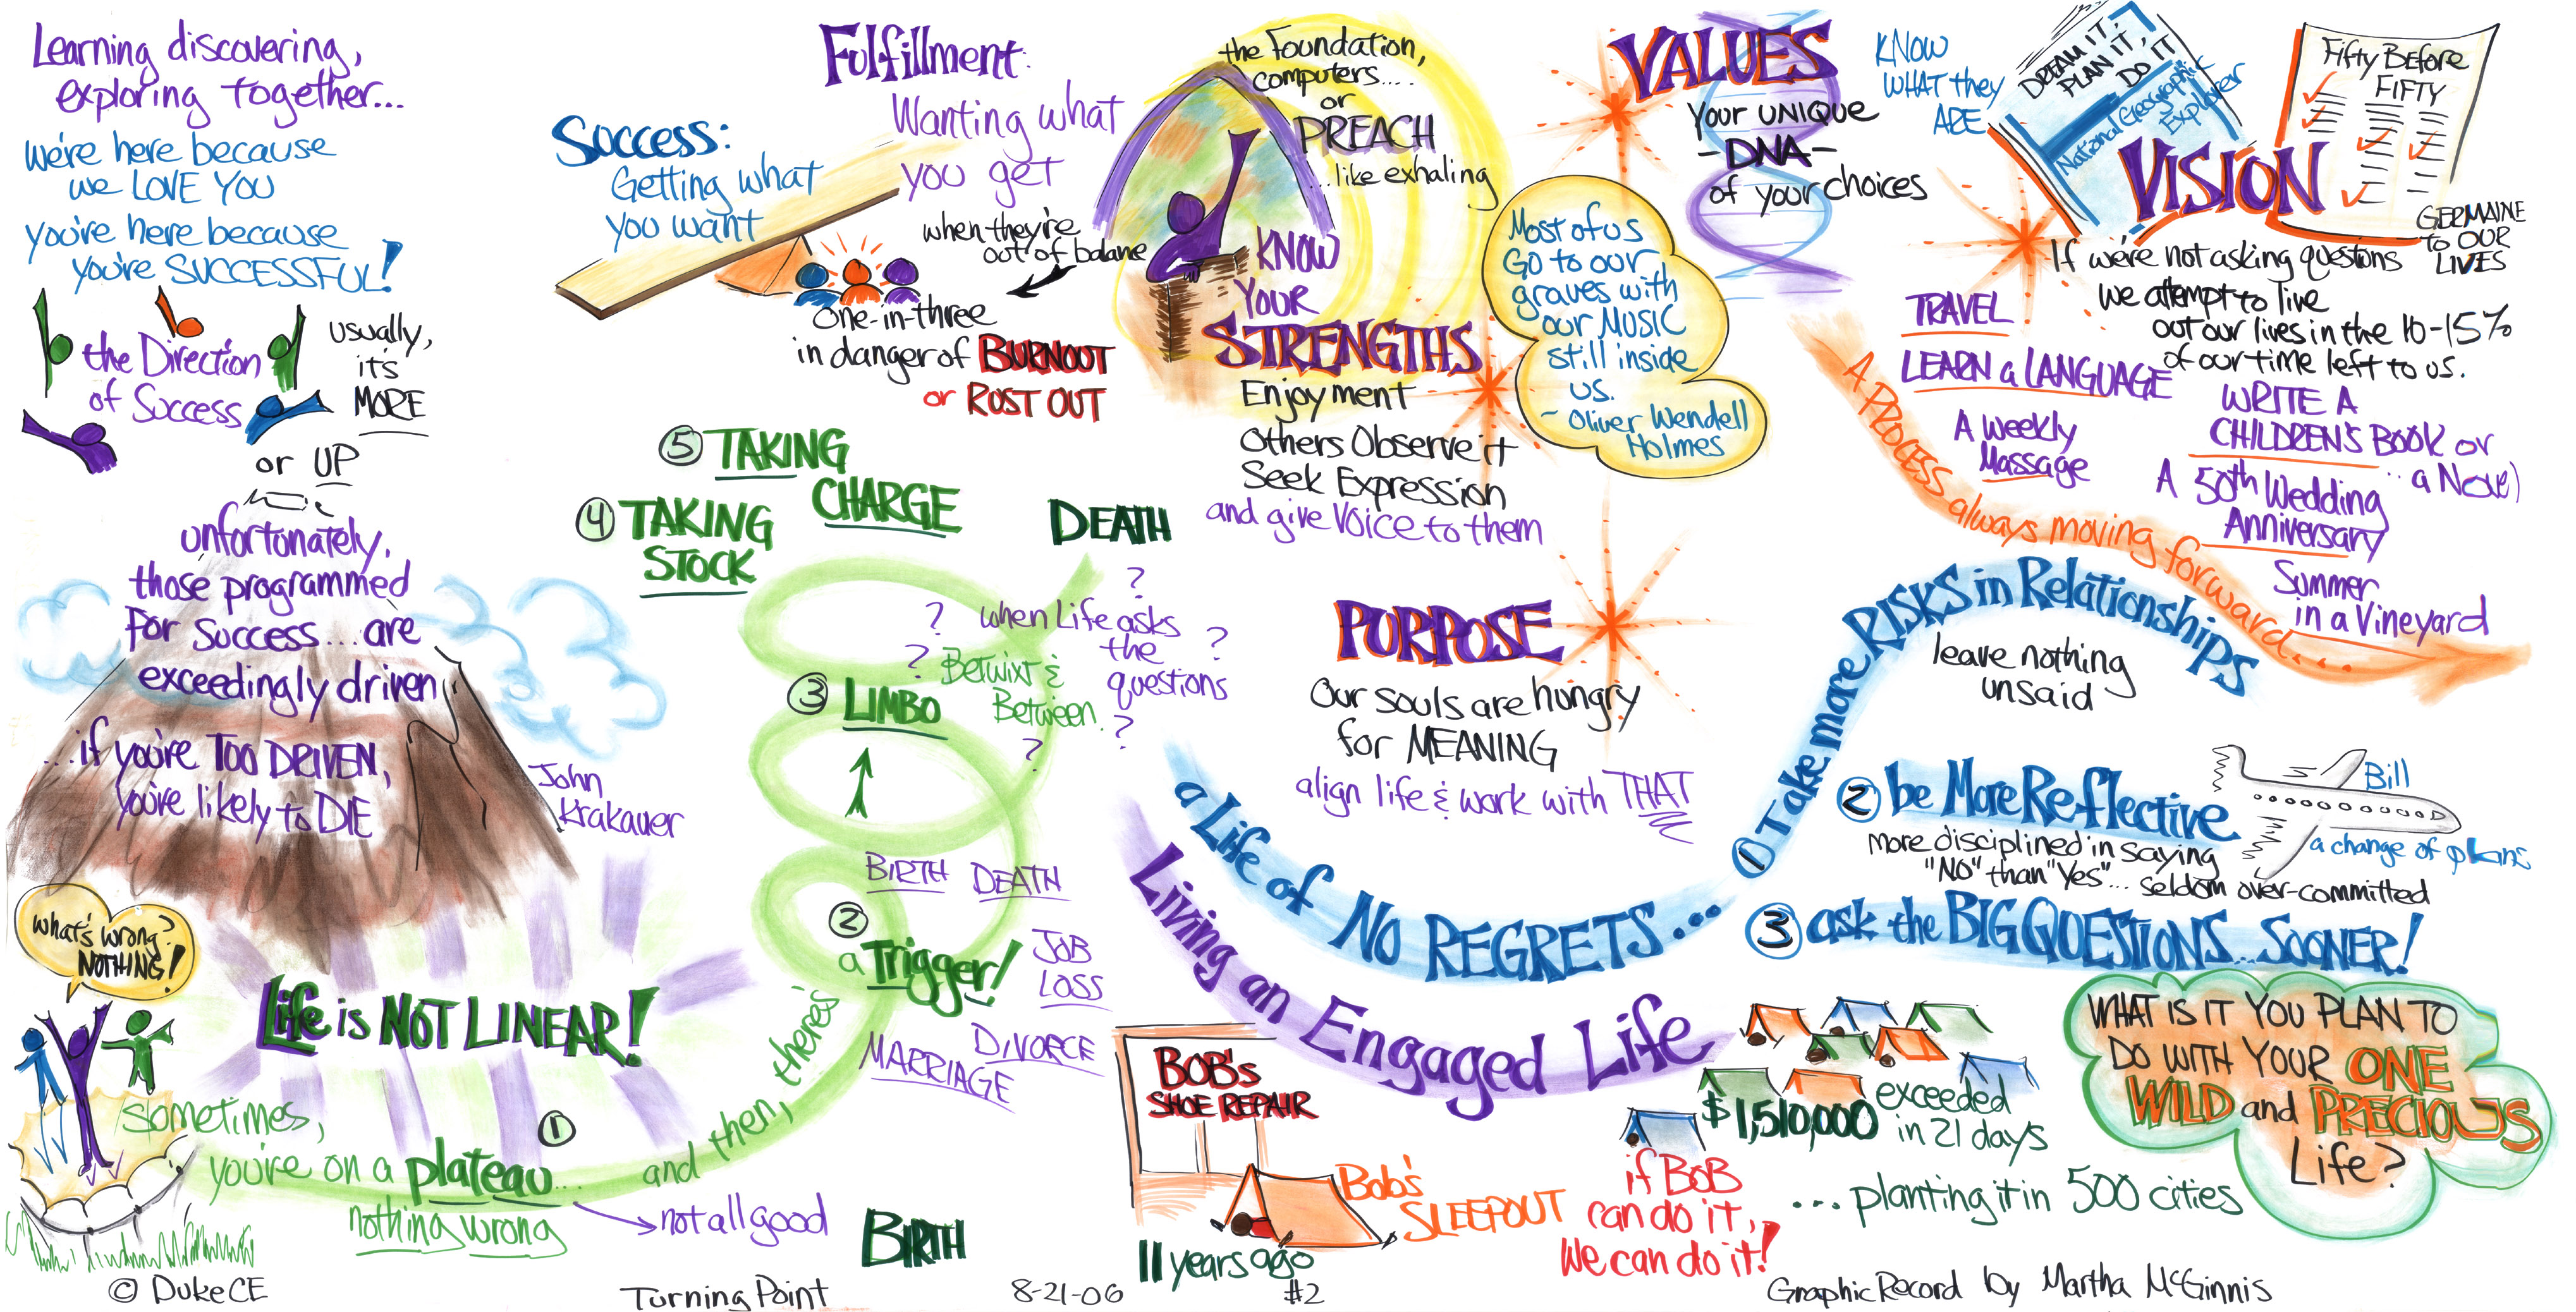 Learning discovering,
exploring together...
we're here because
we LOVE YOU
you're here because
you're SUCCESSFUL!
the Direction
of Success
usually,
it's
MORE
or UP
unfortunately,
those programmed
For Success... are
exceedingly driven
...if you're TOO DRIVEN,
you're likely to DIE
John
Krakauer
what's wrong?
NOTHING!
Life is NOT LINEAR!
Sometimes,
you're on a plateau...
nothing wrong
① 
not all good
and then, there's
② 
a Trigger!
BIRTH DEATH
JOB
LOSS
DIVORCE
MARRIAGE
③ LIMBO
Betwixt &
Between
when Life asks
the
questions
? ? ? ? ? ?
④ TAKING
STOCK
⑤ TAKING
CHARGE
DEATH
BIRTH
Success:
Getting what
you want
Fulfillment:
Wanting what
you get
when they're
out of balane
One-in-three
in danger of BURNOUT
or RUST OUT
the Foundation,
computers....
or
PREACH
...like exhaling
KNOW
YOUR
STRENGTHS
Enjoyment
Others Observe it
Seek Expression
and give VOICE to them
Most of us
Go to our
graves with
our MUSIC
still inside
us.
~ Oliver Wendell
Holmes
VALUES
Your UNIQUE
-DNA-
of your choices
KNOW
WHAT they
ARE
DREAM IT,
PLAN IT,
DO IT
National Geographic
Explorer
Fifty Before
FIFTY
VISION
GERMAINE
to OUR
LIVES
If we're not asking questions
we attempt to live
out our lives in the 10-15%
of our time left to us.
TRAVEL
LEARN a LANGUAGE
A Weekly
Massage
WRITE A
CHILDREN'S BOOK or
...a Novel
A 50th Wedding
Anniversary
Summer
in a Vineyard
A PROCESS always moving forward....
PURPOSE
Our souls are hungry
for MEANING
align life & work with THAT
a Life of NO REGRETS...
① Take more RISKS in Relationships
leave nothing
unsaid
② be More Reflective
More disciplined in saying
"NO" than "Yes"... seldom over-committed
Bill
a change of plans
③ ask the BIG QUESTIONS...SOONER!
Living an Engaged Life
BOB's
SHOE REPAIR
Bob's
SLEEPOUT
11 years ago
if BOB
can do it,
We can do it!
$1,510,000 exceeded
in 21 days
...planting it in 500 cities
WHAT IS IT YOU PLAN TO
DO WITH YOUR ONE
WILD and PRECIOUS
Life?
© DukeCE
Turning Point
8-21-06
#2
Graphic Record by Martha McGinnis